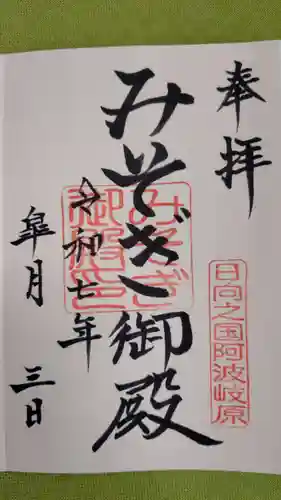 奉拝
日向之国阿波岐原
みそぎ御殿
みそぎ
御殿印
令和七年
皐月 三日